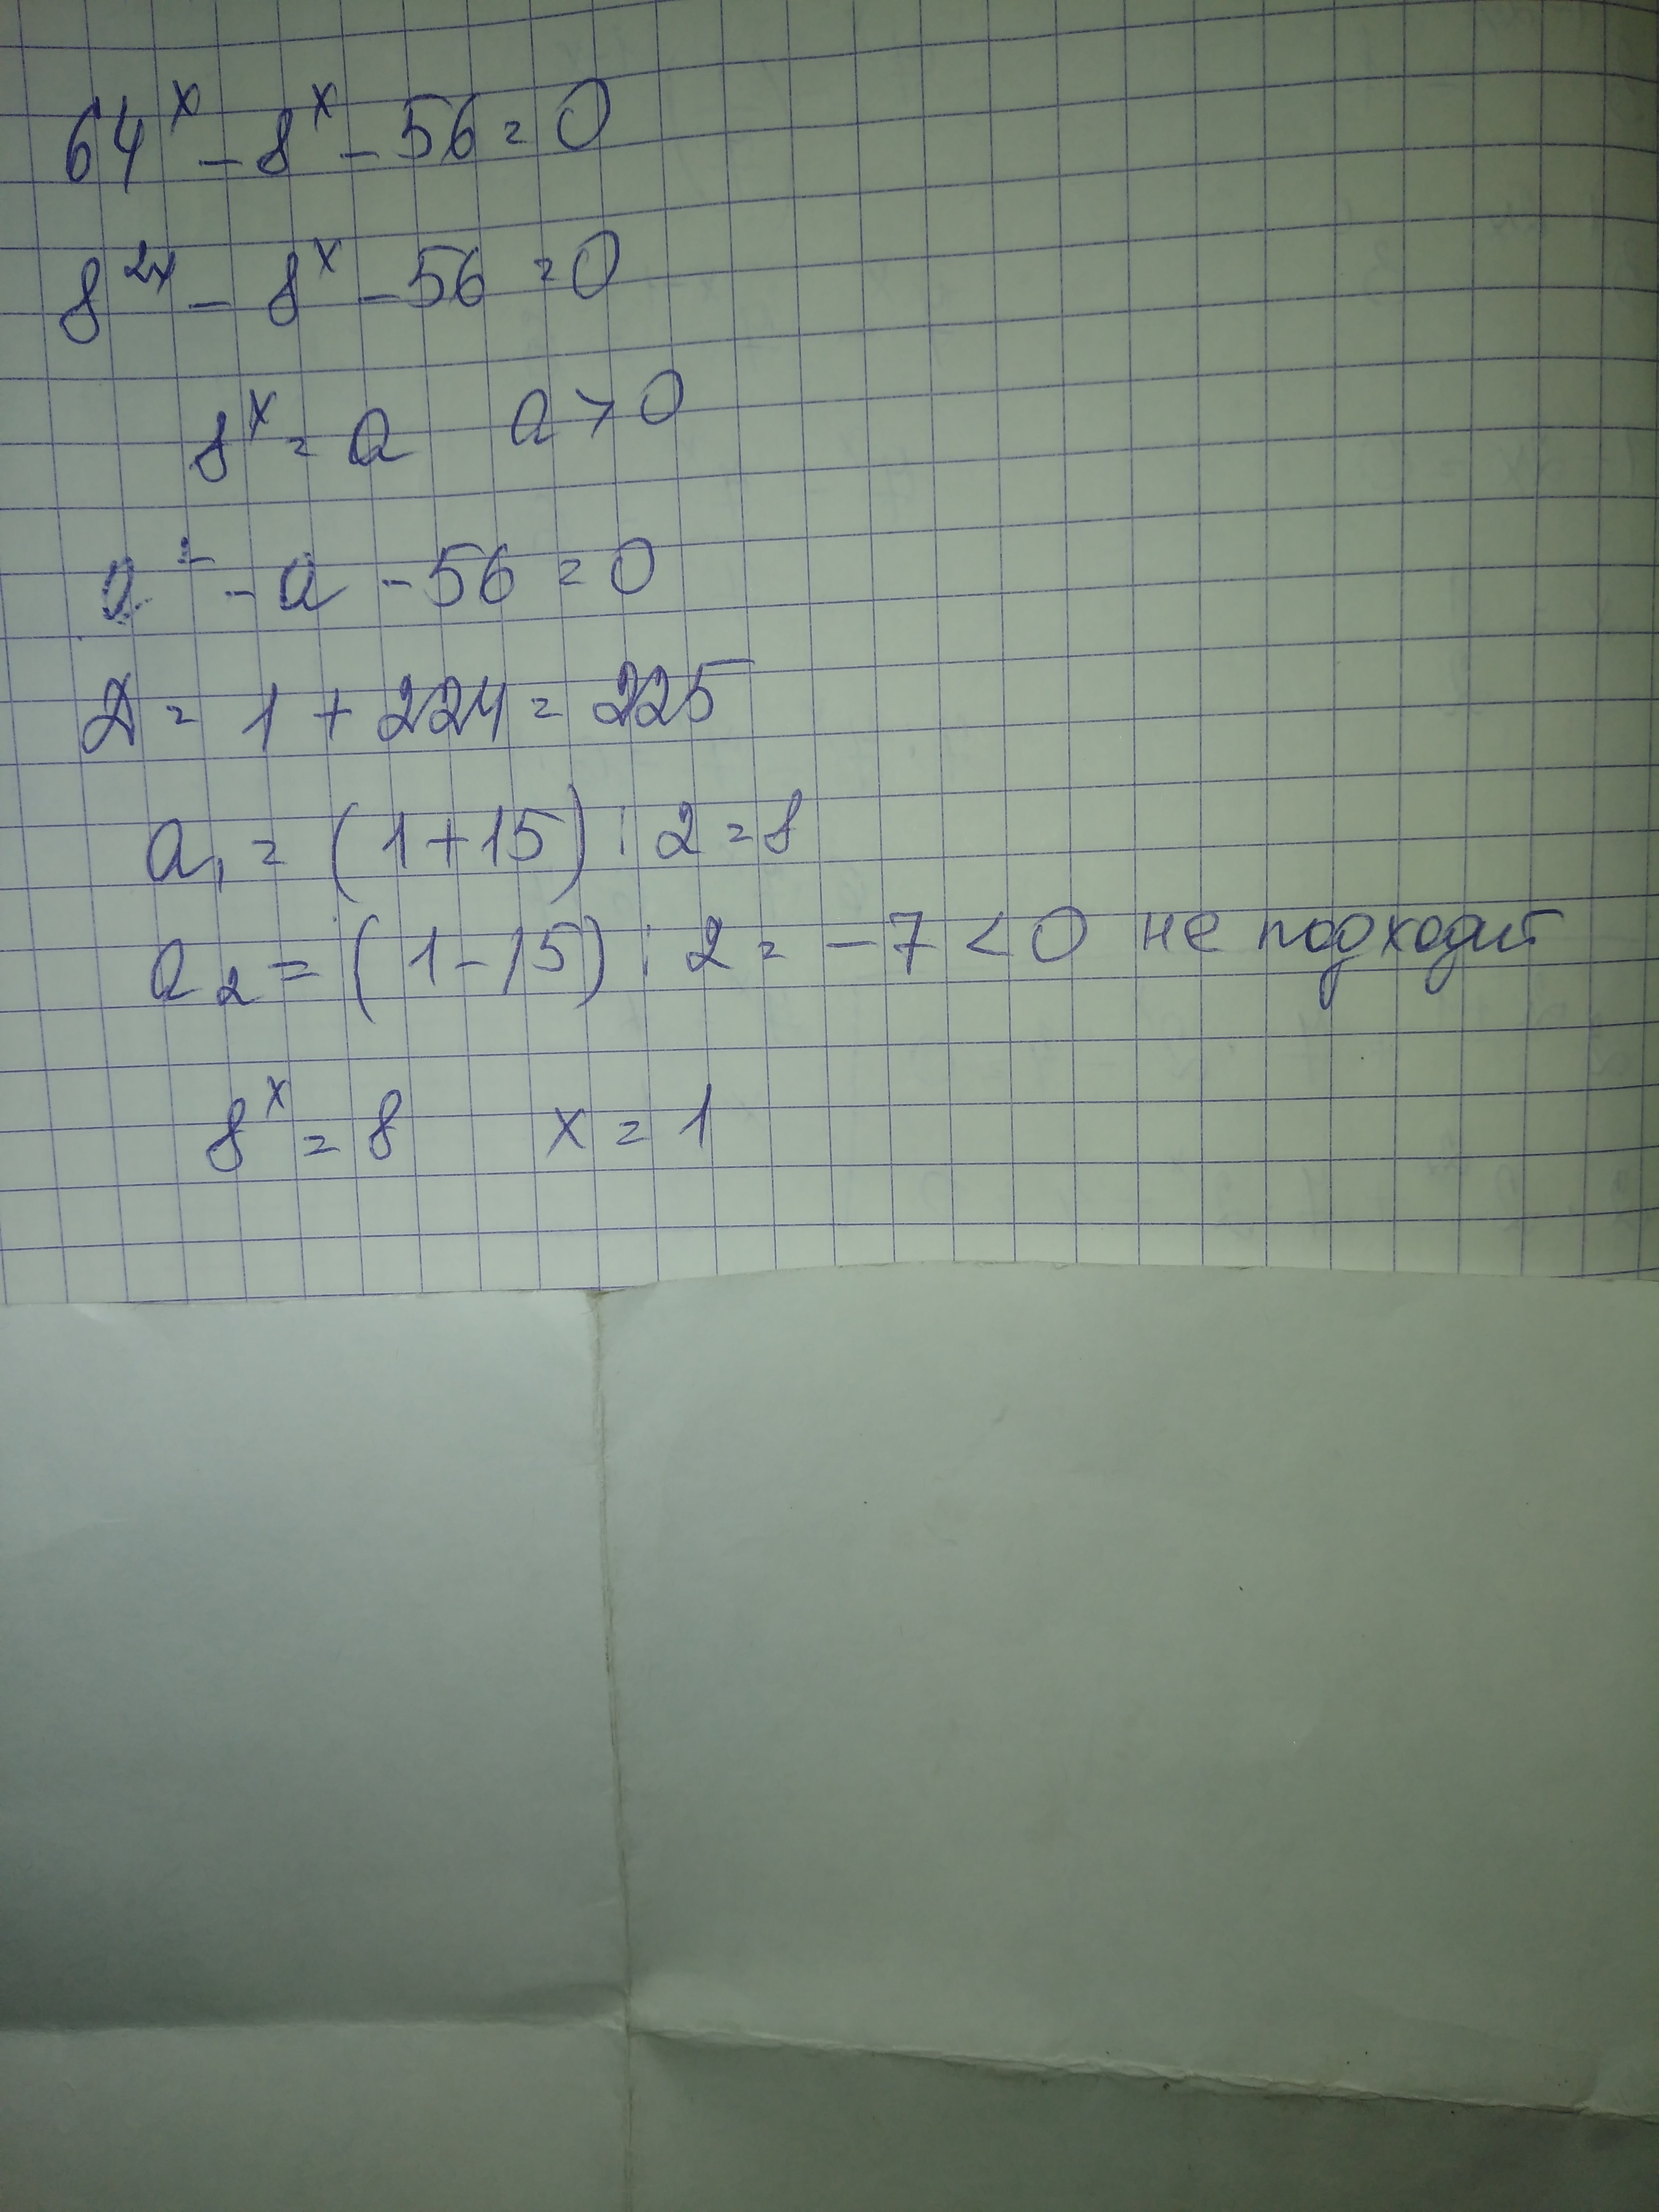 64ˣ - 8ˣ - 56 = 0
8²ˣ - 8ˣ - 56 = 0
8ˣ = a a > 0
a² - a - 56 = 0
D = 1 + 224 = 225
a₁ = (1 + 15) : 2 = 8
a₂ = (1 - 15) : 2 = -7 < 0 не подходит
8ˣ = 8 x = 1